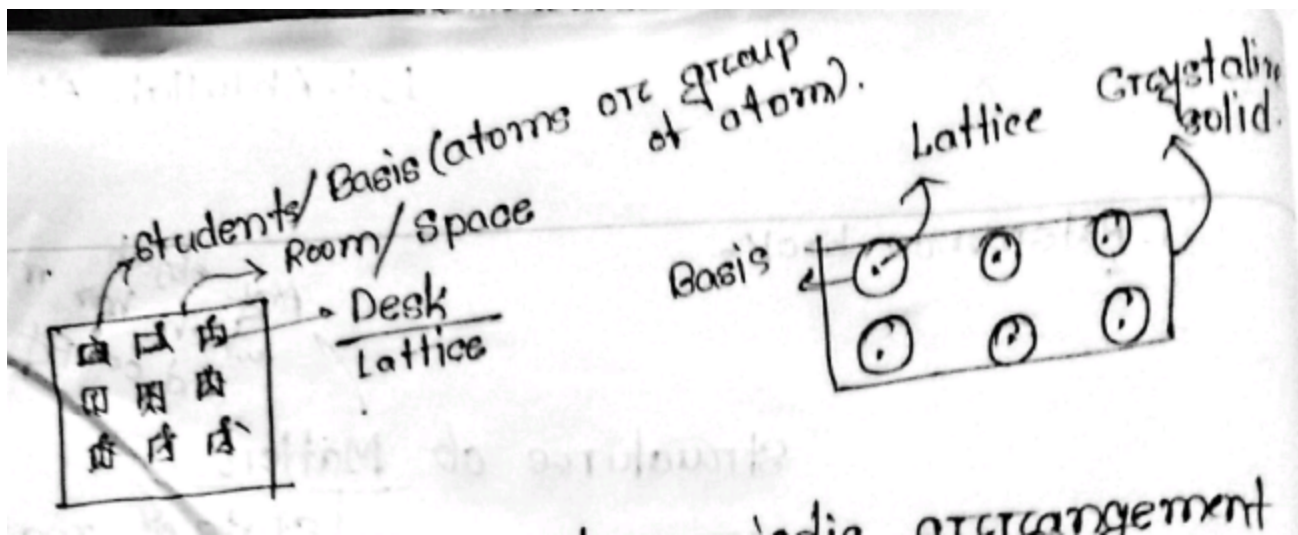 Students/Basis (atoms or group
of atom).
Room/Space
Desk
Lattice
Lattice
Crystalin
solid.
Basis
arrangement